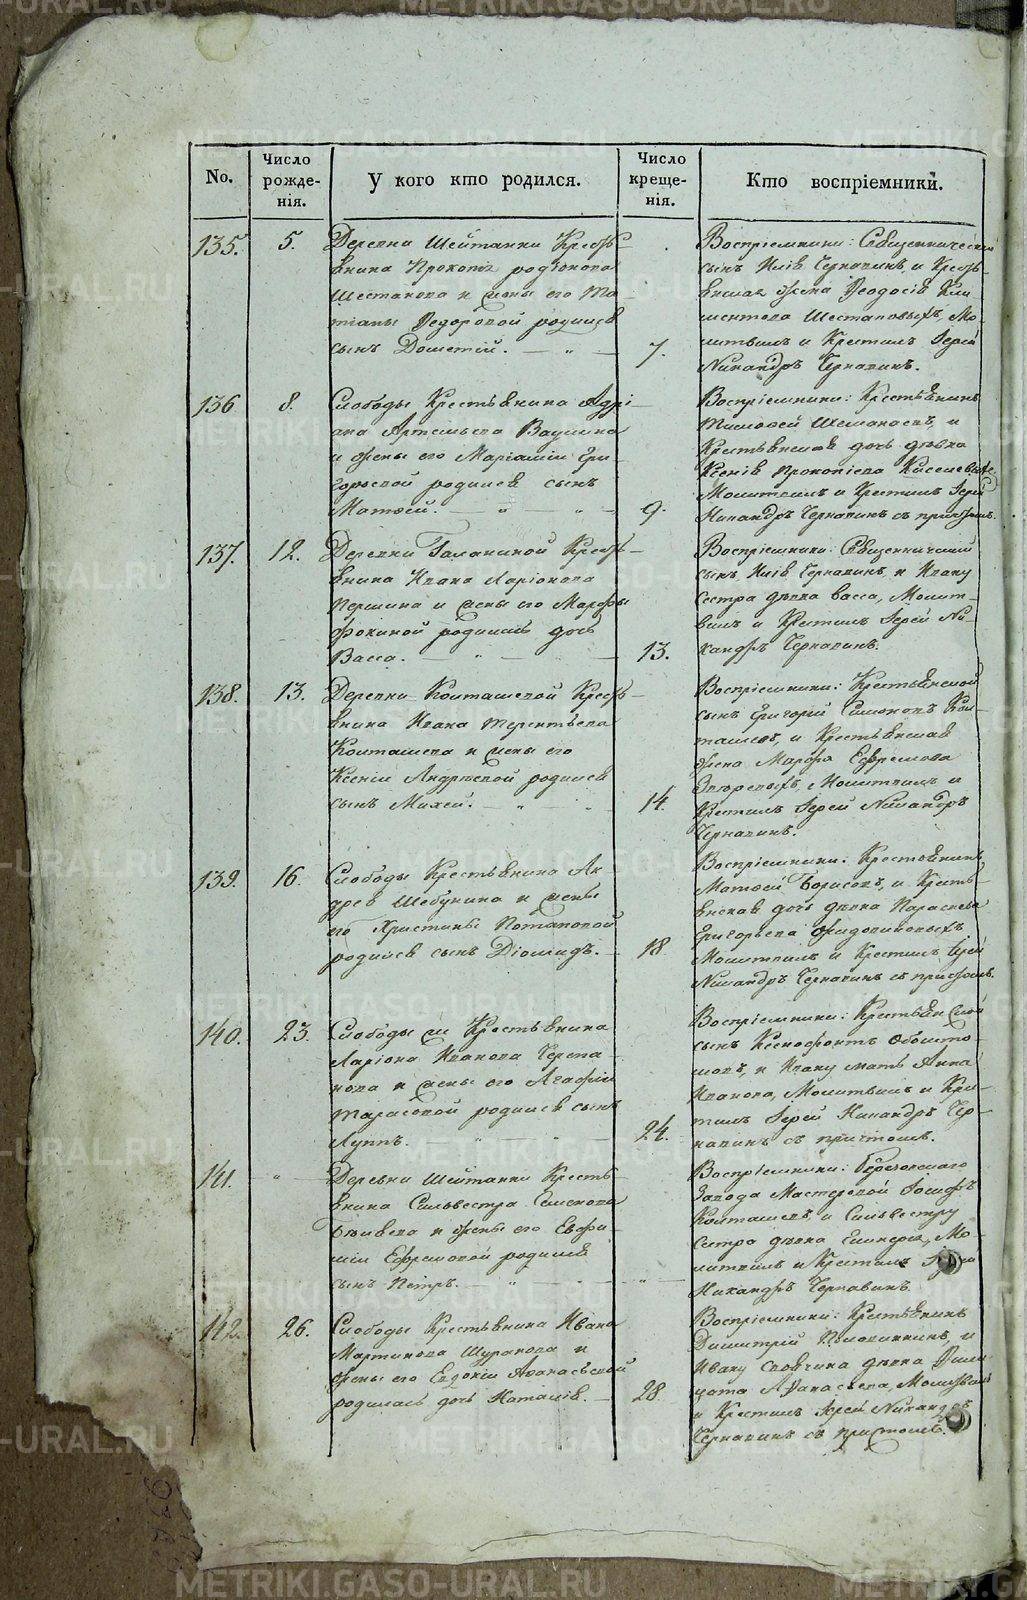 No.
Число рожде-нія.
У кого кто родился.
Число креще-нія.
Кто воспріемники.
135.
5.
Деревни Шейтанки Кресть-
янина Прокопа Родіонова
Шестакова и жены его Та-
тіаны Ѳедоровой родился
сынъ Дометій.
7.
Воспріемники: Священническій
сынъ Илія Чернавинъ, и Кресть-
янская жена Ѳеодосія Кли-
ментова Шестаковыхъ, Мо-
литвилъ и Крестилъ Іерей
Никандръ Чернавинъ.
136
8.
Слободы Крестьянина Адрі-
ана Артемьева Ваулина
и жены его Маріамны Гри-
горьевой родился сынъ
Матѳей.
9.
Воспріемники: Крестьянинъ
Тимоѳей Шеманаевъ, и
Крестьянская дочь дѣвка
Ксенія Прокопіева
Молитвилъ и Крестилъ Іерей
Никандръ Чернавинъ съ причтомъ.
137.
12.
Деревни Галаниной Кресть-
янина Ивана Ларіонова
Першина и жены его Марѳы
Фокиной родилась дочь
Васса.
13.
Воспріемники: Священничій
сынъ Илія Чернавинъ, и Ивану
сестра дѣвка Васса, Молит-
вилъ и Крестилъ Іерей Ни-
кандръ Чернавинъ.
138.
13.
Деревни Колташевой Кресть-
янина Ивана Терентьева
Колташева и жены его
Ксеніи Андреевой родился
сынъ Михей.
14.
Воспріемники: Крестьянской
сынъ Григорій Симоновъ Кол-
ташевъ, и Крестьянская
жена Марѳа Ефремова
Молитвилъ и
Крестилъ Іерей Никандръ
Чернавинъ.
139.
16.
Слободы Крестьянина Ан-
дрея Шебунина и жены
его Христины Потаповой
родился сынъ Діомидъ.
18
Воспріемники: Крестьянинъ
Матѳей Борисовъ, и Кресть-
янская дочь дѣвка Параскева
Григорьева
Молитвилъ и Крестилъ Іерей
Никандръ Чернавинъ съ причтомъ.
140.
23.
Слободы Крестьянина
Ларіона Иванова Черепа-
нова и жены его Агафіи
Тарасовой родился сынъ
Луппъ.
24.
Воспріемники: Крестьянской
сынъ Ксенофонтъ
и Ивану мать Анна
Иванова, Молитвилъ и Кре-
стилъ Іерей Никандръ Чер-
навинъ съ причтомъ.
141.
Деревни Шейтанки Кресть-
янина Сильвестра Симонова
и жены его Евфи-
міи Ефремовой родился
сынъ Петръ.
Воспріемники: Березовскаго
Завода Мастеровой Іосифъ
Колташевъ, и Сильвестру
сестра дѣвка Гликерія, Мо-
литвилъ и Крестилъ Іерей
Никандръ Чернавинъ.
142.
26.
Слободы Крестьянина Ивана
Мартинова Шуракова и
жены его Евдокіи Аѳанасьевой
родилась дочь Наталія.
28
Воспріемники: Крестьянинъ
Димитрій и
Ивану своячина дѣвка
Аѳанасьева, Молитвилъ
и Крестилъ Іерей Никандръ
Чернавинъ съ причтомъ.
METRIKI.GASO-URAL.RU